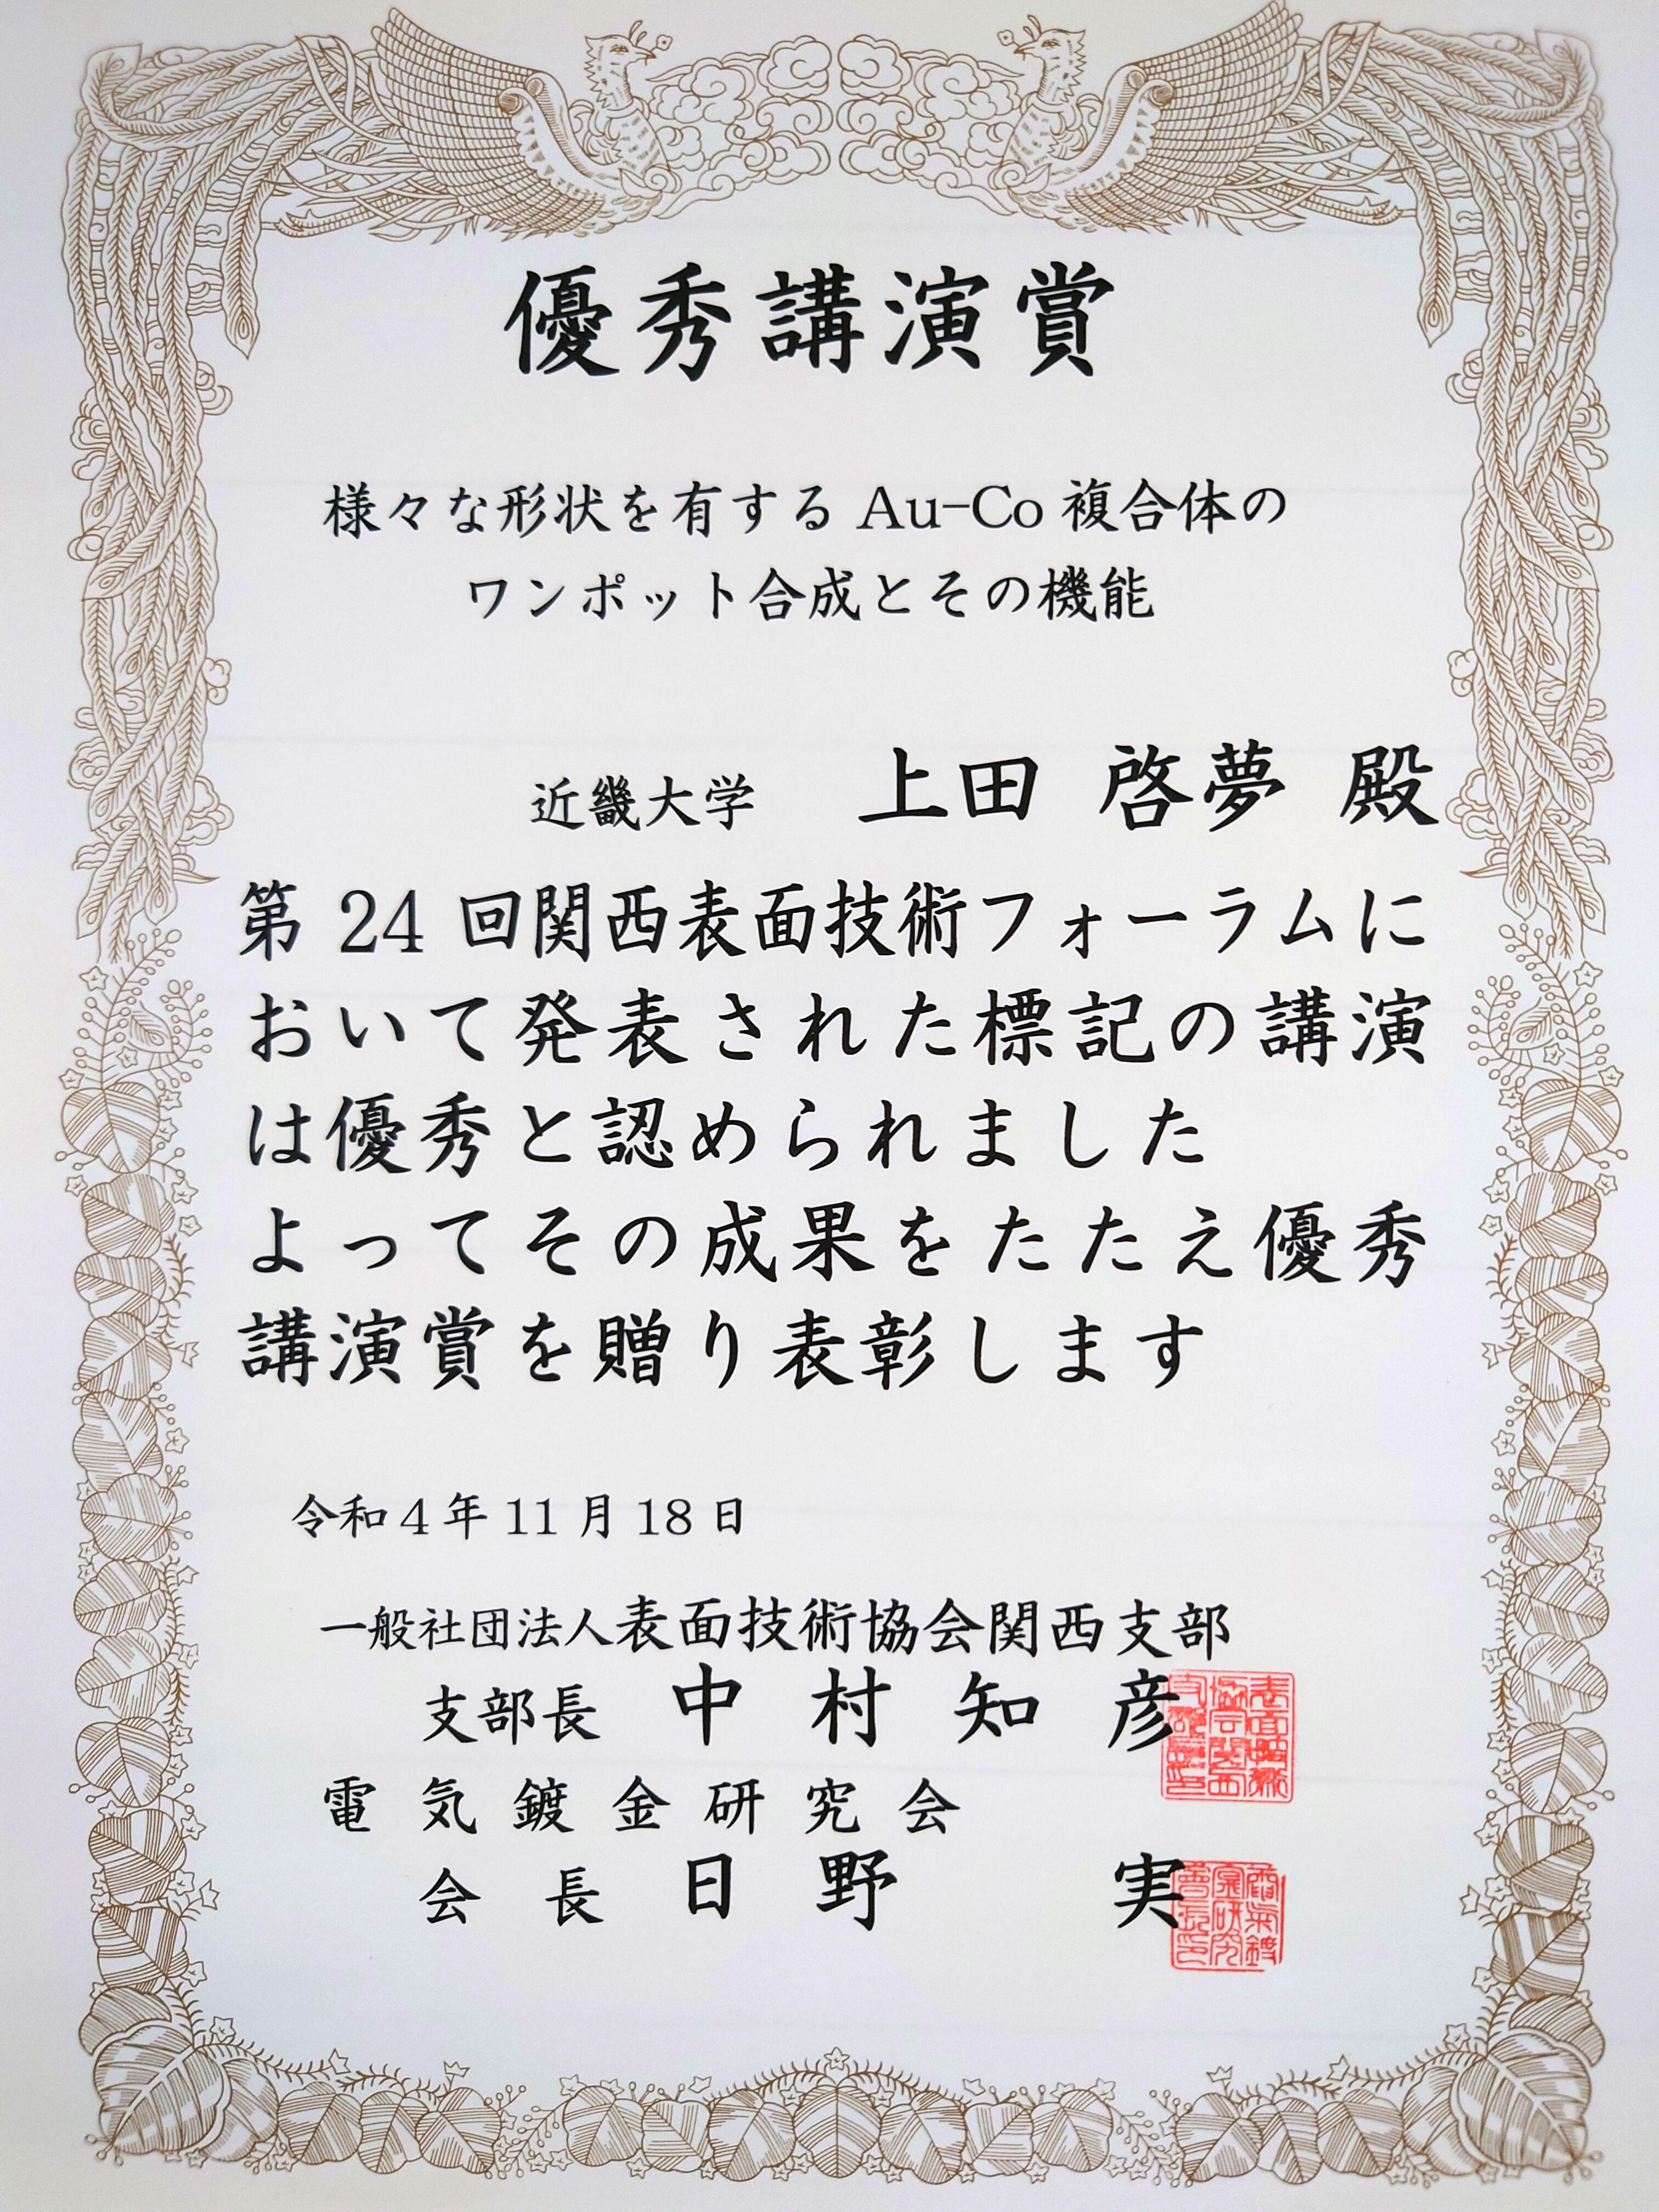 優秀講演賞
様々な形状を有する Au-Co 複合体の
ワンポット合成とその機能
近畿大学 上田 啓夢 殿
第 24 回関西表面技術フォーラムに
おいて発表された標記の講演
は優秀と認められました
よってその成果をたたえ優秀
講演賞を贈り表彰します
令和4年 11 月 18 日
一般社団法人表面技術協会関西支部
支部長 中村知彦
電気鍍金研究会
会長 日野 実